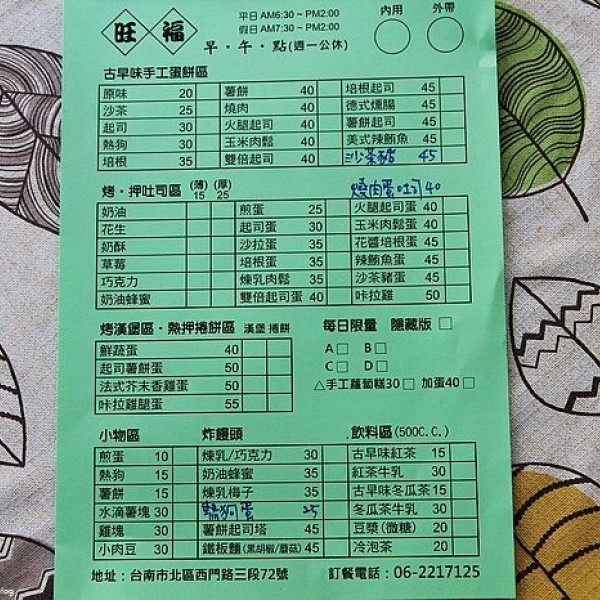 旺福 平日AM6:30~PM2:00 內用 外帶
假日AM7:30~PM2:00
早・午・點(週一公休)
古早味手工蛋餅區
原味 20 薯餅 40 培根起司 45
沙茶 25 燒肉 40 德式燻腸 45
起司 30 火腿起司 40 薯餅起司 45
熱狗 30 玉米肉鬆 40 美式辣鮪魚 45
培根 35 雙倍起司 40 沙茶豬 45
烤・押吐司區 (薄)15 (厚)25 燒肉蛋吐司40
奶油 煎蛋 25 火腿起司蛋 40
花生 起司蛋 30 玉米肉鬆蛋 40
奶酥 沙拉蛋 35 花醬培根蛋 45
草莓 培根蛋 35 辣鮪魚蛋 45
巧克力 煉乳肉鬆 35 沙茶豬蛋 45
奶油蜂蜜 雙倍起司蛋 40 咔拉雞 50
烤漢堡區・熱押捲餅區 漢堡 捲餅 每日限量 隱藏版□
鮮蔬蛋 40 A□ B□
起司薯餅蛋 50 C□ D□
法式芥末香雞蛋 50 △手工蘿蔔糕30□ 加蛋40□
咔拉雞腿蛋 55
小物區 炸饅頭 飲料區(500C.C.)
煎蛋 10 煉乳/巧克力 30 古早味紅茶 15
熱狗 15 奶油蜂蜜 35 紅茶牛乳 30
薯餅 15 煉乳梅子 35 古早味冬瓜茶 15
水滴薯塊 30 熱狗蛋 25 冬瓜茶牛乳 30
雞塊 30 薯餅起司塔 45 豆漿(微糖) 20
小肉豆 30 鐵板麵(黑胡椒/蘑菇) 45 冷泡茶 20
地址:台南市北區西門路三段72號 訂餐電話:06-2217125